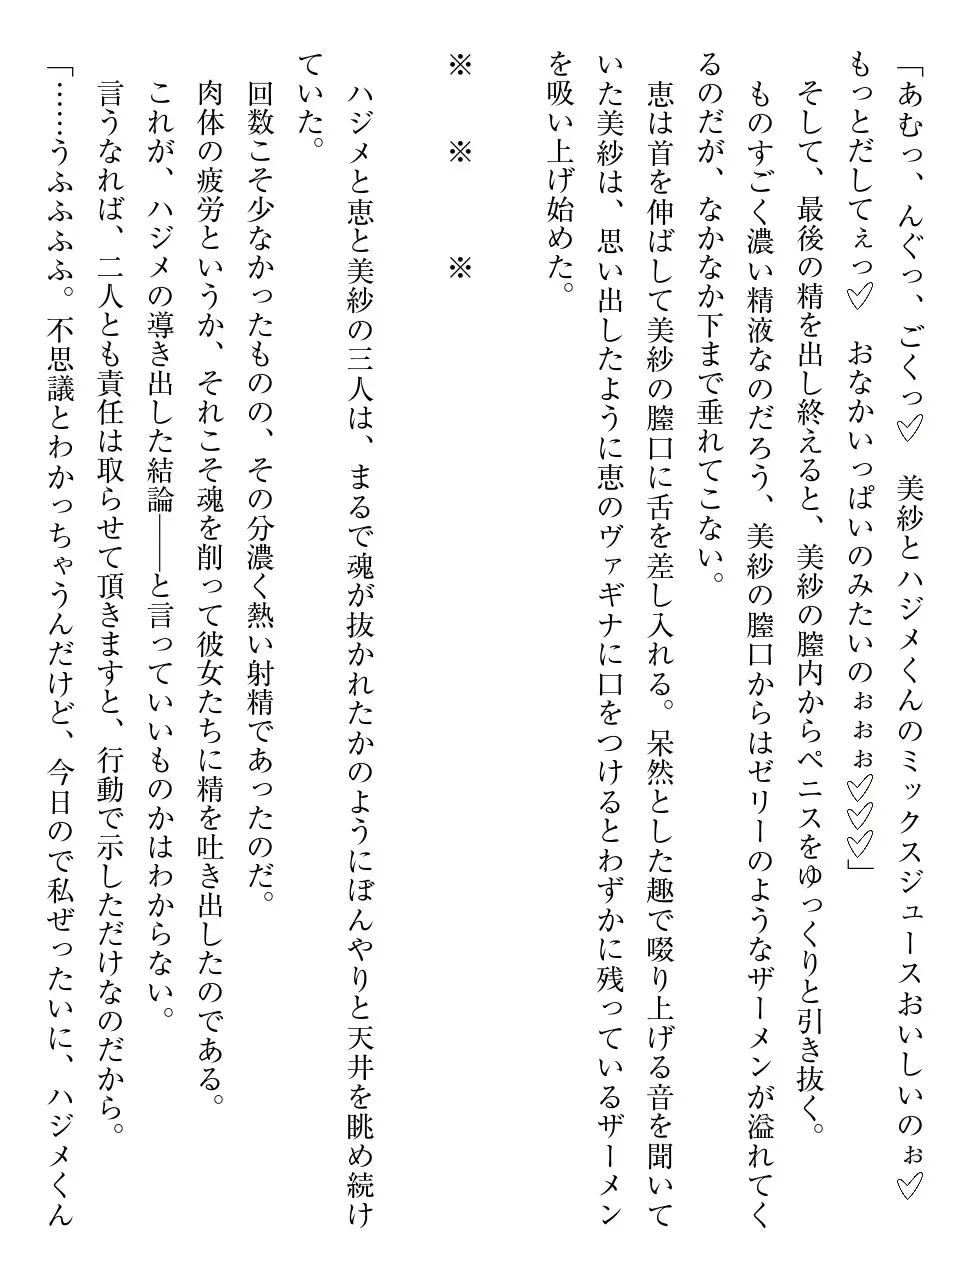 「あむっ、んぐっ、ごくっ♡　美紗とハジメくんのミックスジュースおいしいのぉ♡
もっとだしてぇっ♡　おなかいっぱいのみたいのぉぉぉ♡♡♡」
　そして、最後の精を出し終えると、美紗の膣内からペニスをゆっくりと引き抜く。
　ものすごく濃い精液なのだろう、美紗の膣口からはゼリーのようなザーメンが溢れてく
るのだが、なかなか下まで垂れてこない。
　恵は首を伸ばして美紗の膣口に舌を差し入れる。呆然とした趣で啜り上げる音を聞いて
いた美紗は、思い出したように恵のヴァギナに口をつけるとわずかに残っているザーメン
を吸い上げ始めた。
※　※　※
　ハジメと恵と美紗の三人は、まるで魂が抜かれたかのようにぼんやりと天井を眺め続け
ていた。
　回数こそ少なかったものの、その分濃く熱い射精であったのだ。
　肉体の疲労というか、それこそ魂を削って彼女たちに精を吐き出したのである。
　これが、ハジメの導き出した結論――と言っていいものかはわからない。
　言うなれば、二人とも責任は取らせて頂きますと、行動で示しただけなのだから。
「……うふふふふ。不思議とわかっちゃうんだけど、今日ので私ぜったいに、ハジメくん